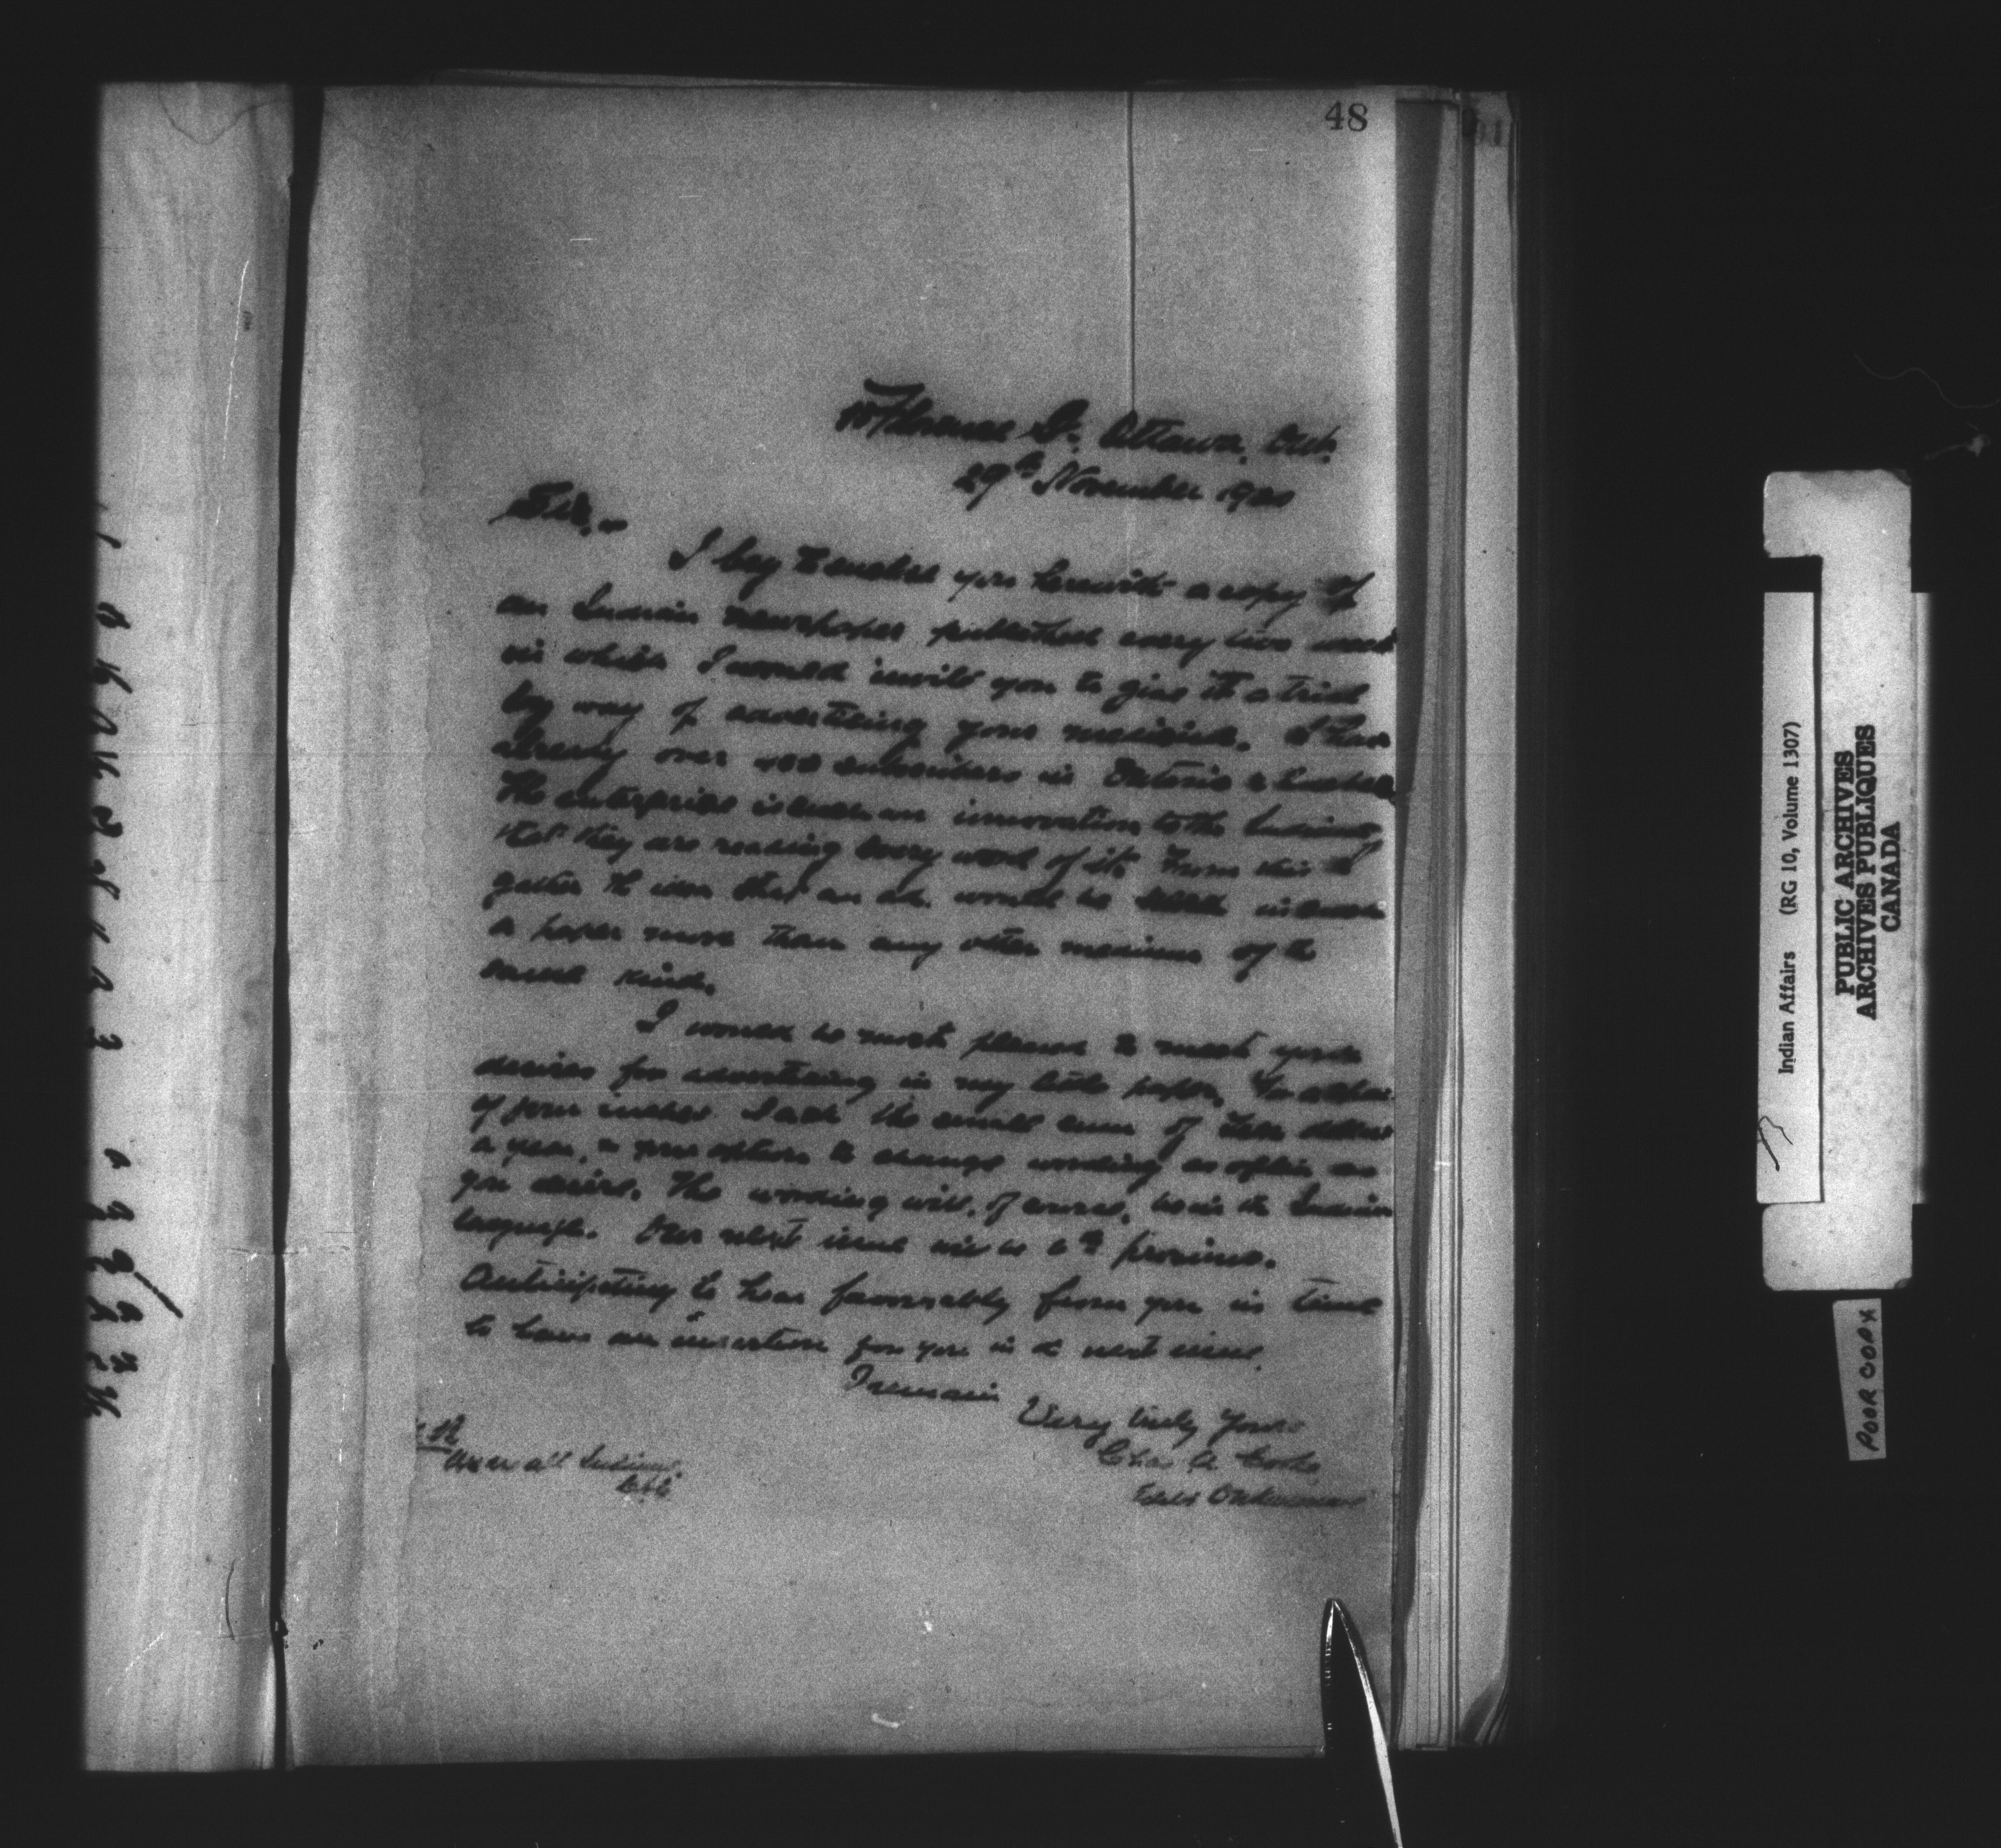 48
Florence St. Ottawa, Ont.
29th November 1900
Sir,
I beg to enclose you herewith a copy of
an Indian newspaper published every two week
in which I would invite you to give it a trial
by way of advertising your medicine. I have
already over 400 subscribers in Ontario & Quebec
The enterprise is such an innovation to the Indians
that they are reading every word of it. From this I
gather the idea that an ad. would be in such
a paper more than any other medium of the
same kind.
I would be most pleased to meet your
desires for advertising in my little paper. For a space
of four inches I ask the small sum of dollars
a year, & free option to change wording as often as
you desire. The wording will, of course, be in the Indian
language. Our next issue will be 6th proximo.
Anticipating to hear favourably from you in time
to have an insertion for you in the next issue.
I remain
Very truly yours
Chas A. Cooke
all Indians.
Indian Affairs (RG 10, Volume 1307)
PUBLIC ARCHIVES
ARCHIVES PUBLIQUES
CANADA
POOR COPY